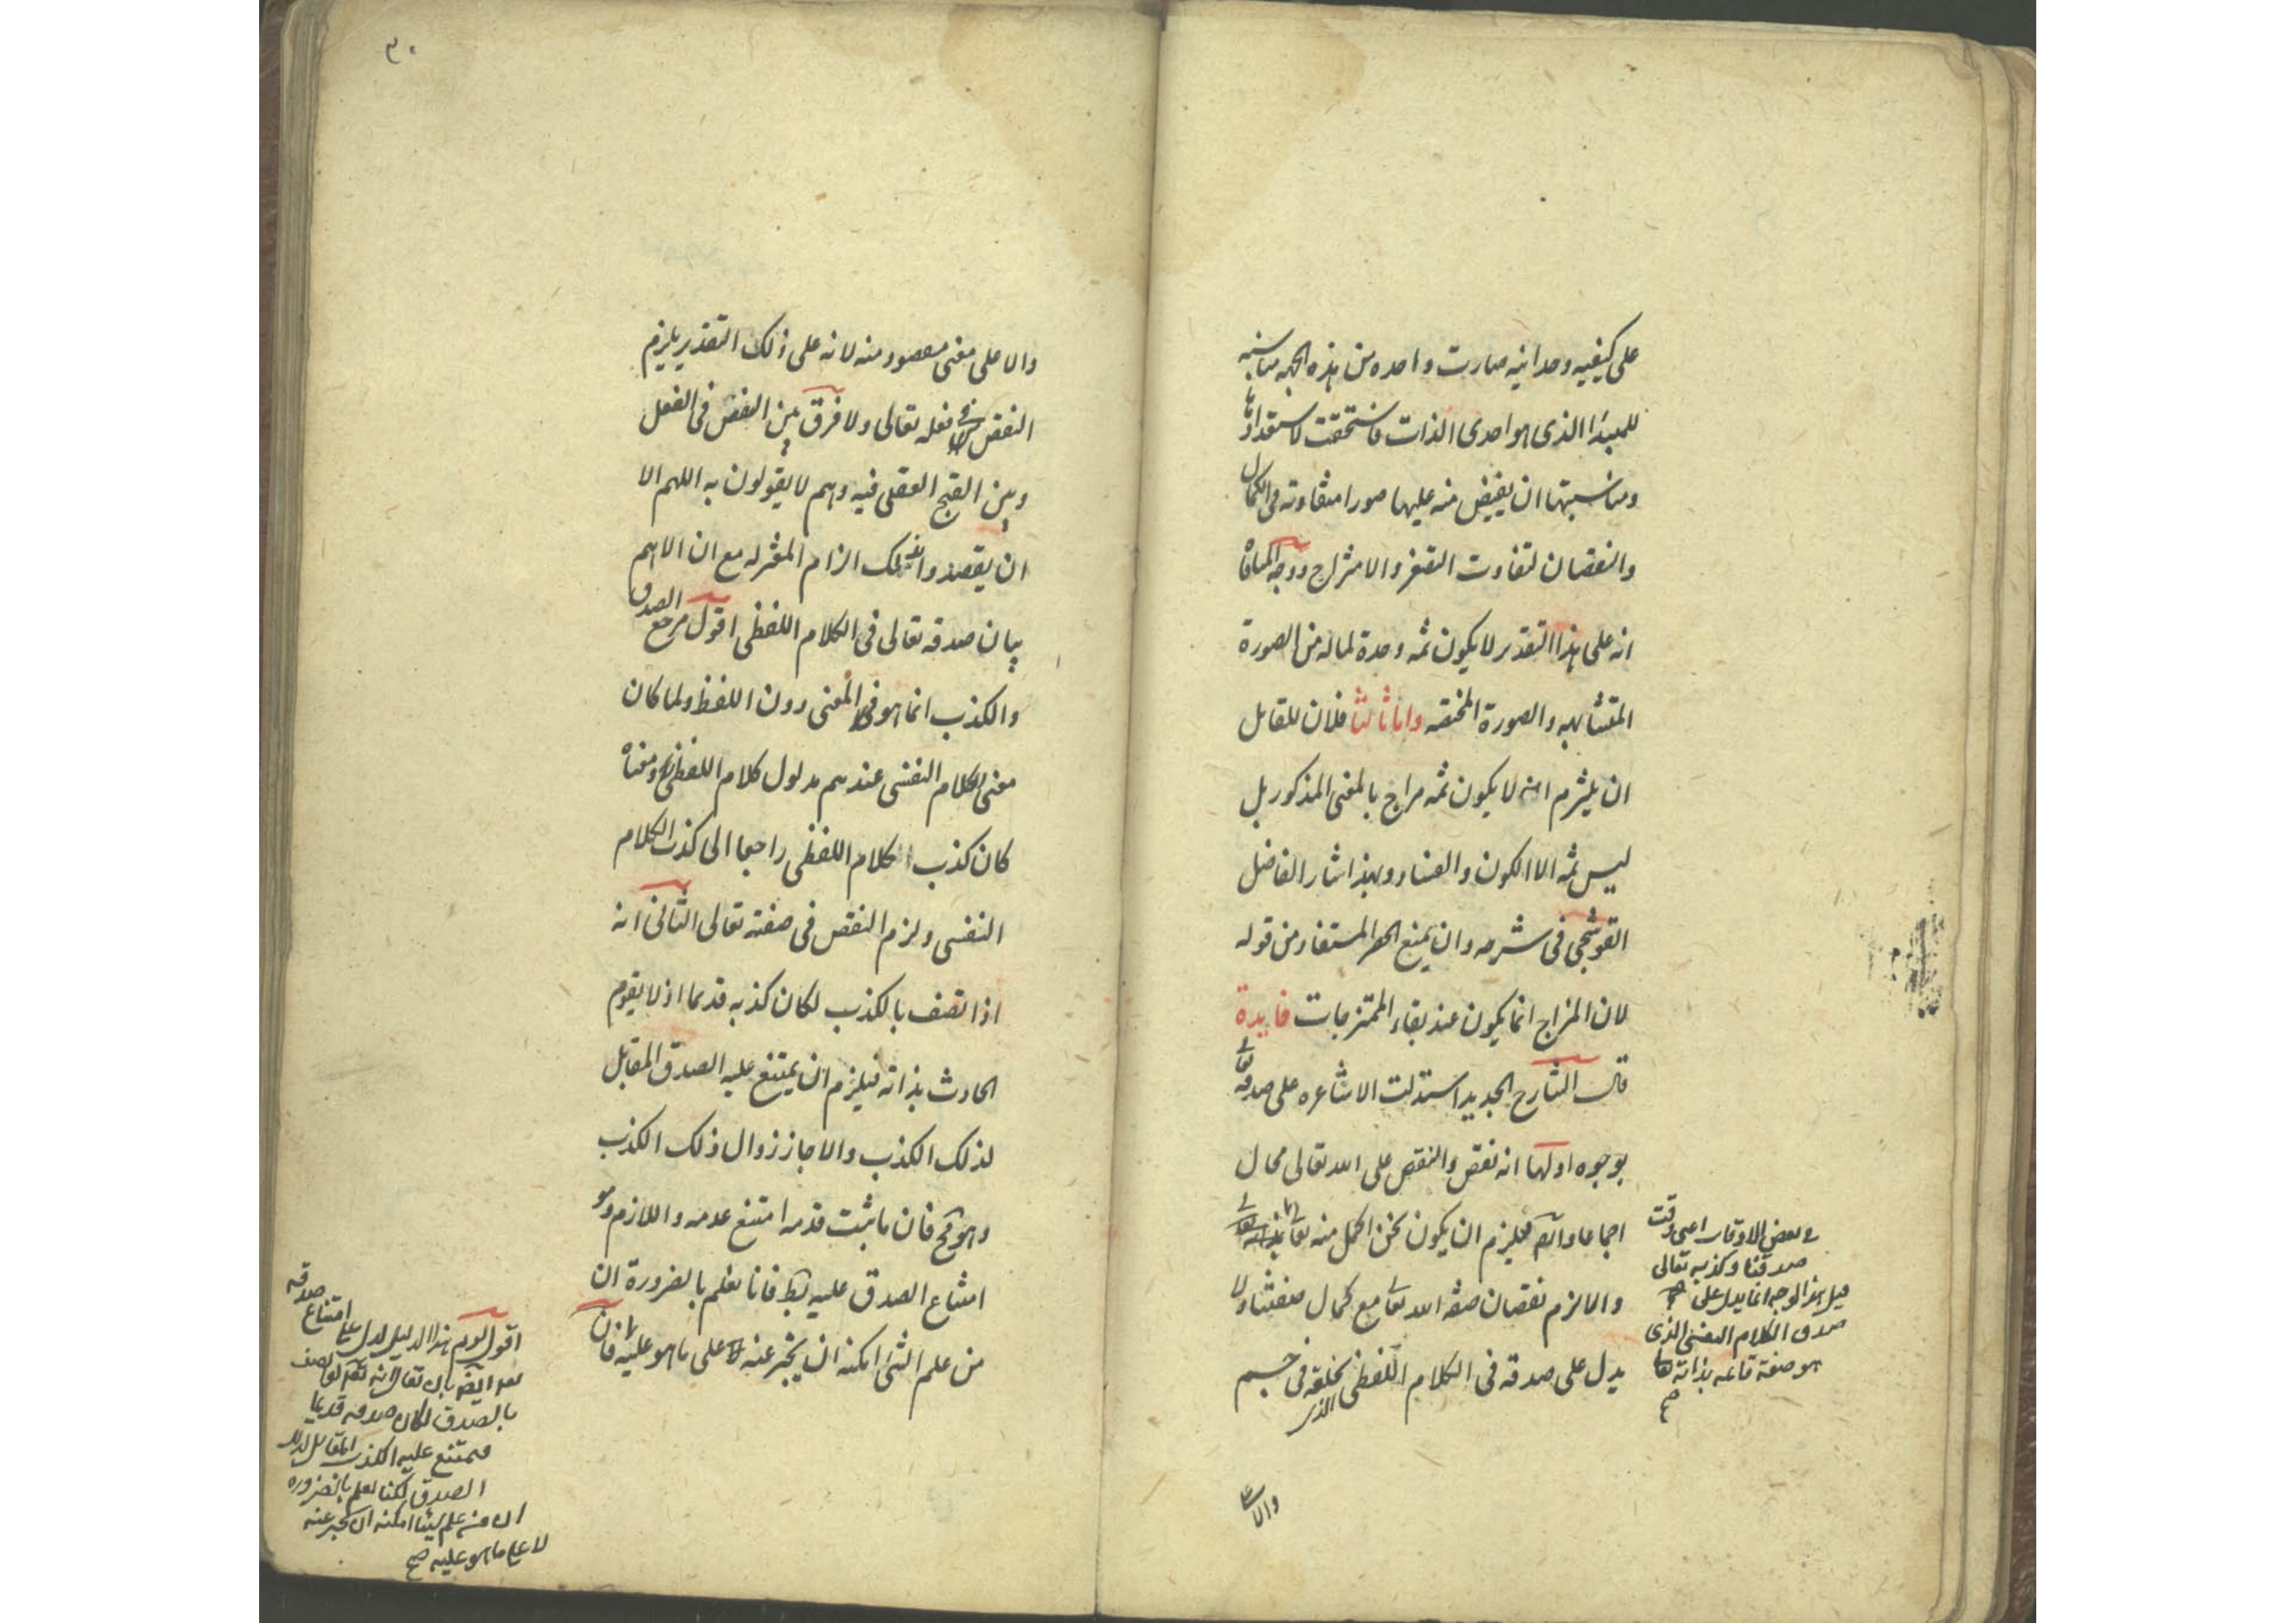 على كيفيه وحدانيه صارت واحده من هذه الجهه مناسبه
للمبدا الذى هو احدى الذات فاستحقت لاستعدادها
ومناسبتها ان يفيض منه عليها صورا متفاوته فى الكمال
والنقصان لتفاوت التصغر والامتزاج ووجه المنافاة
انه على هذا التقدير لا يكون ثمه وحدة لماله من الصورة
المتشابهه والصورة المختصه واما ثالثا فلان للقايل
ان يلتزم انه لا يكون ثمه مزاج بالمعنى المذكور بل
ليس ثمه الا الكون والفساد وبهذا اشار الفاضل
القوشجى فى شرحه وان يمنع الحصر المستفاد من قوله
لان المزاج انما يكون عند بقاء الممتزجات فايدة
قال الشارح الجديد استدلت الاشاعره على صدقه تعالى
بوجوه اولها انه نقص والنقص على الله تعالى محال
اجماعا وايضا فيلزم ان يكون نحن اكمل منه تعالى
فى بعض الاوقات اعنى وقت
صدقنا وكذبه تعالى
قيل هذا الوجه انما يدل على
صدق الكلام النفسى الذى
هو صفة قائمه بذاته تعالى
والا لزم نقصان صفة الله تعالى مع كمال صفتنا ولا
يدل على صدقه فى الكلام اللفظى الذى يخلقه فى جسم
والا
٣٠
والا على معنى مقصود منه لانه على ذلك التقدير يلزم
النقص فى فعله تعالى ولا فرق بين النقص فى الفعل
وبين القبح العقلى فيه وهم لا يقولون به اللهم الا
ان يقصدوا بذلك الزام المعتزله مع ان الاهم
بيان صدقه تعالى فى الكلام اللفظى اقول مرجع الصدق
والكذب انما هو فى المعنى دون اللفظ ولما كان
معنى الكلام النفسى عندهم مدلول كلام اللفظى ومعناه
كان كذب الكلام اللفظى راجعا الى كذب الكلام
النفسى ولزم النقص فى صفته تعالى الثانى انه
اذا اتصف بالكذب لكان كذبه قديما اذ لا يقوم
الحادث بذاته فيلزم ان يمتنع عليه الصدق المقابل
لذلك الكذب والا جاز زوال ذلك الكذب
وهو مح فان ما ثبت قدمه امتنع عدمه واللازم وهو
امتناع الصدق عليه بط فانا نعلم بالضرورة ان
من علم الشئ امكنه ان يخبر عنه على ما هو عليه فان
اقول لو تم هذا الدليل لدل على امتناع صدقه
ايضا بان يقال انه تعالى لو اتصف
بالصدق لكان صدقه قديما
فيمتنع عليه الكذب المقابل لذلك
الصدق لكنا نعلم بالضروره
ان من علم شيئا امكنه ان يخبر عنه
لا على ما هو عليه صح